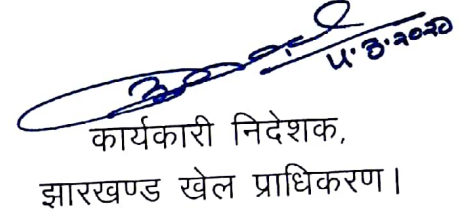 ५.३.२०२०
कार्यकारी निदेशक,
झारखण्ड खेल प्राधिकरण।